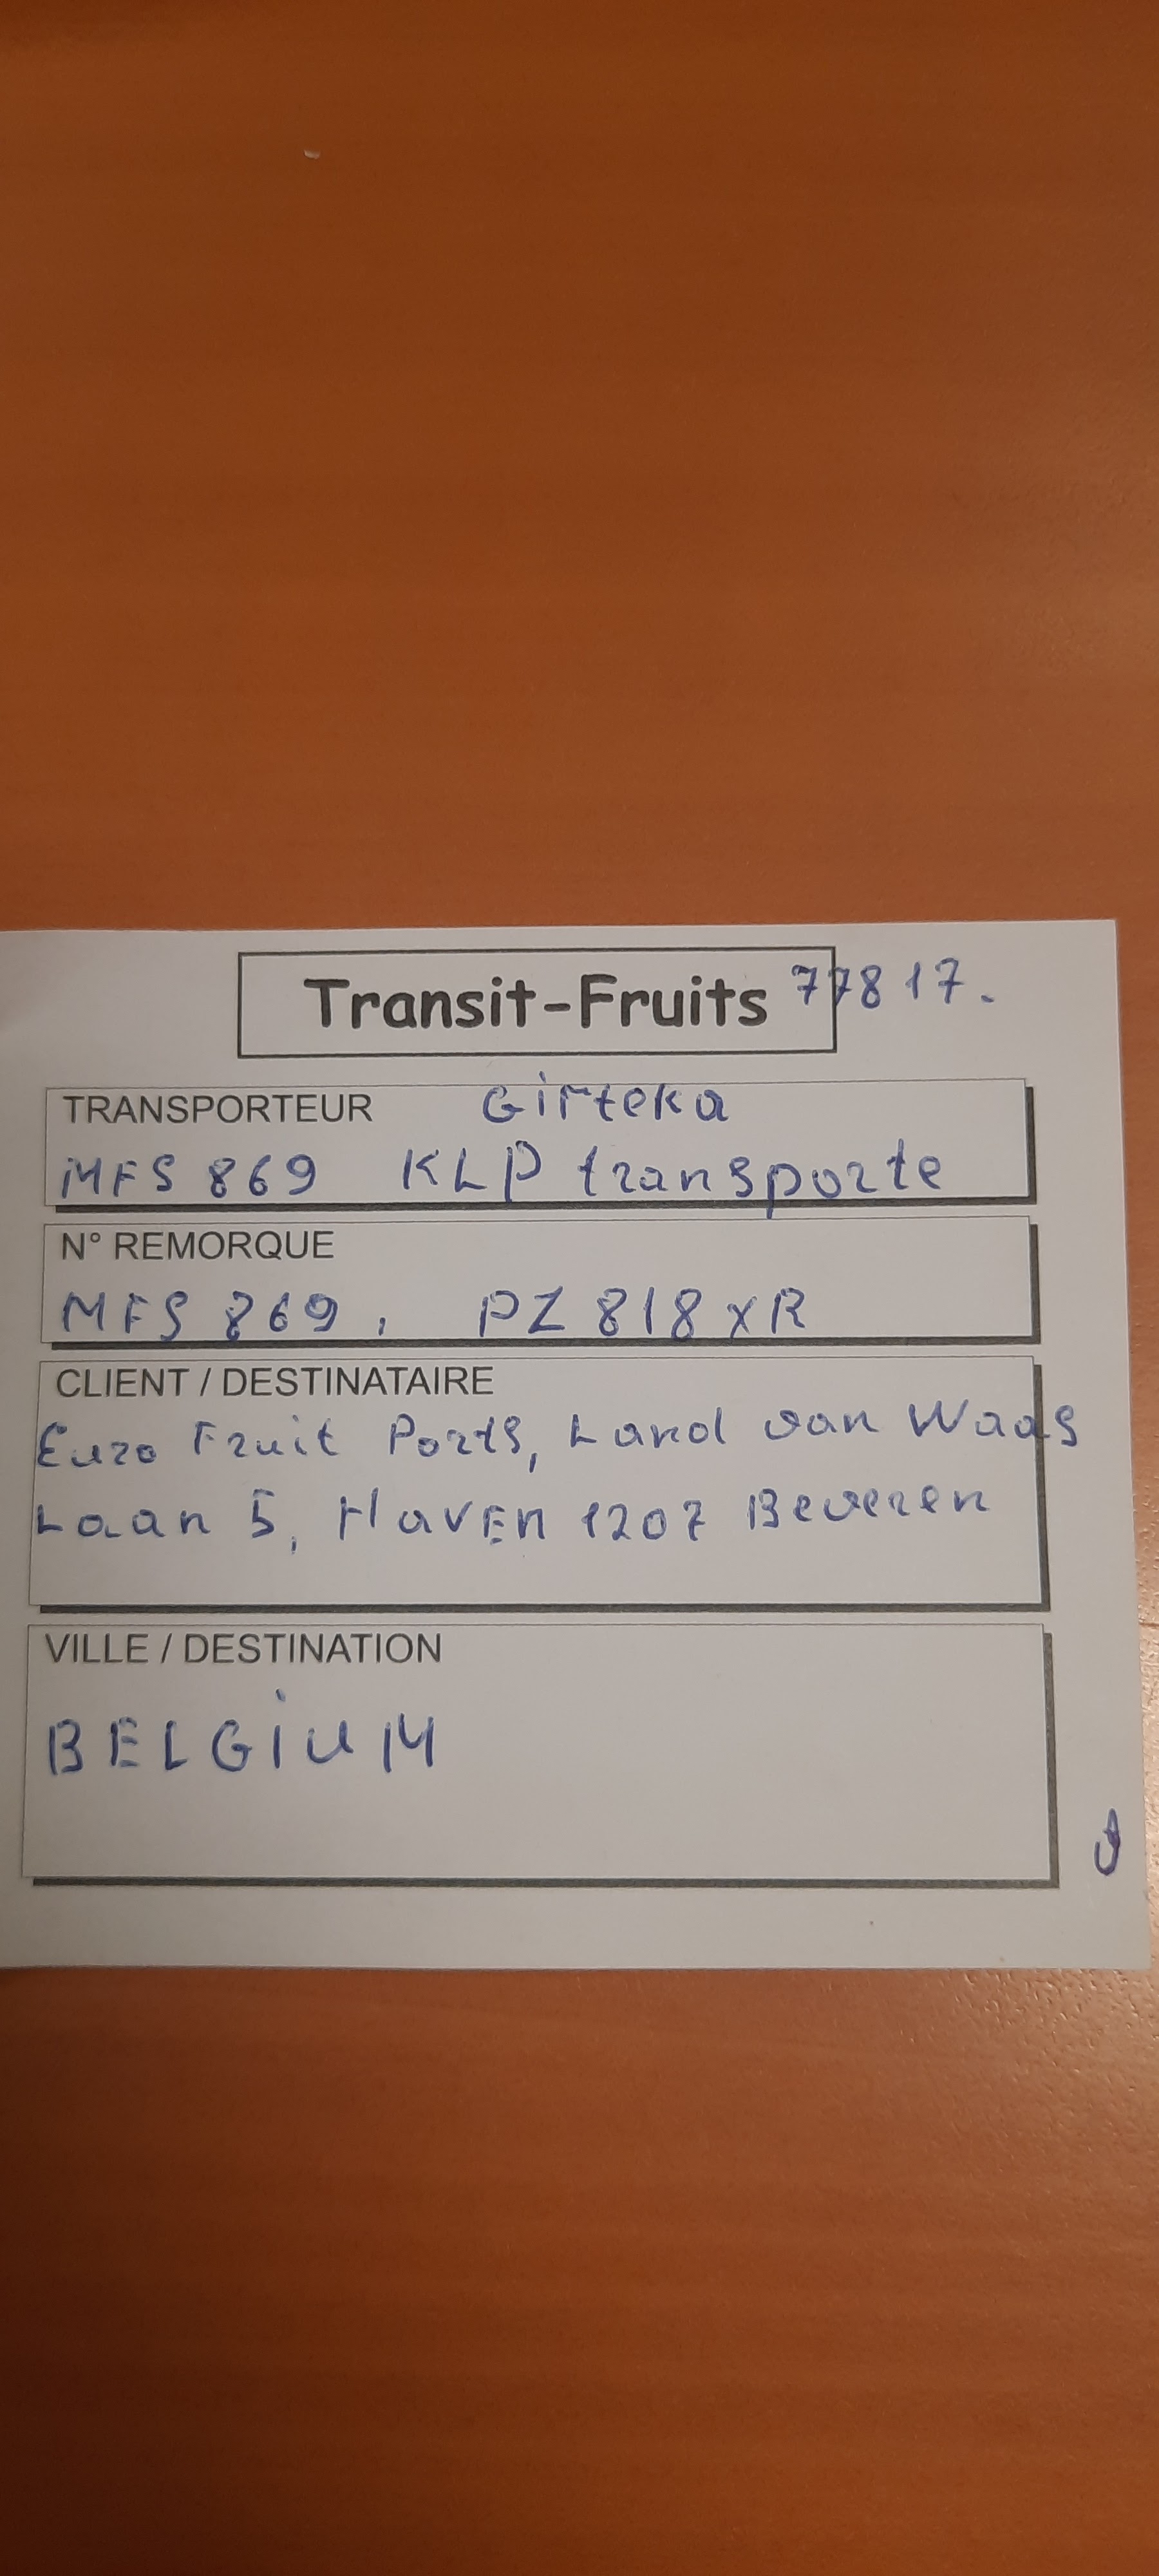 Transit-Fruits 77817.
TRANSPORTEUR Girteka
MFS 869 KLP transporte
N° REMORQUE
MFS 869, PZ 818 XR
CLIENT / DESTINATAIRE
Euro Fruit Ports, Land van Waas
Laan 5, HavEn 1207 Beveren
VILLE / DESTINATION
BELGiuM